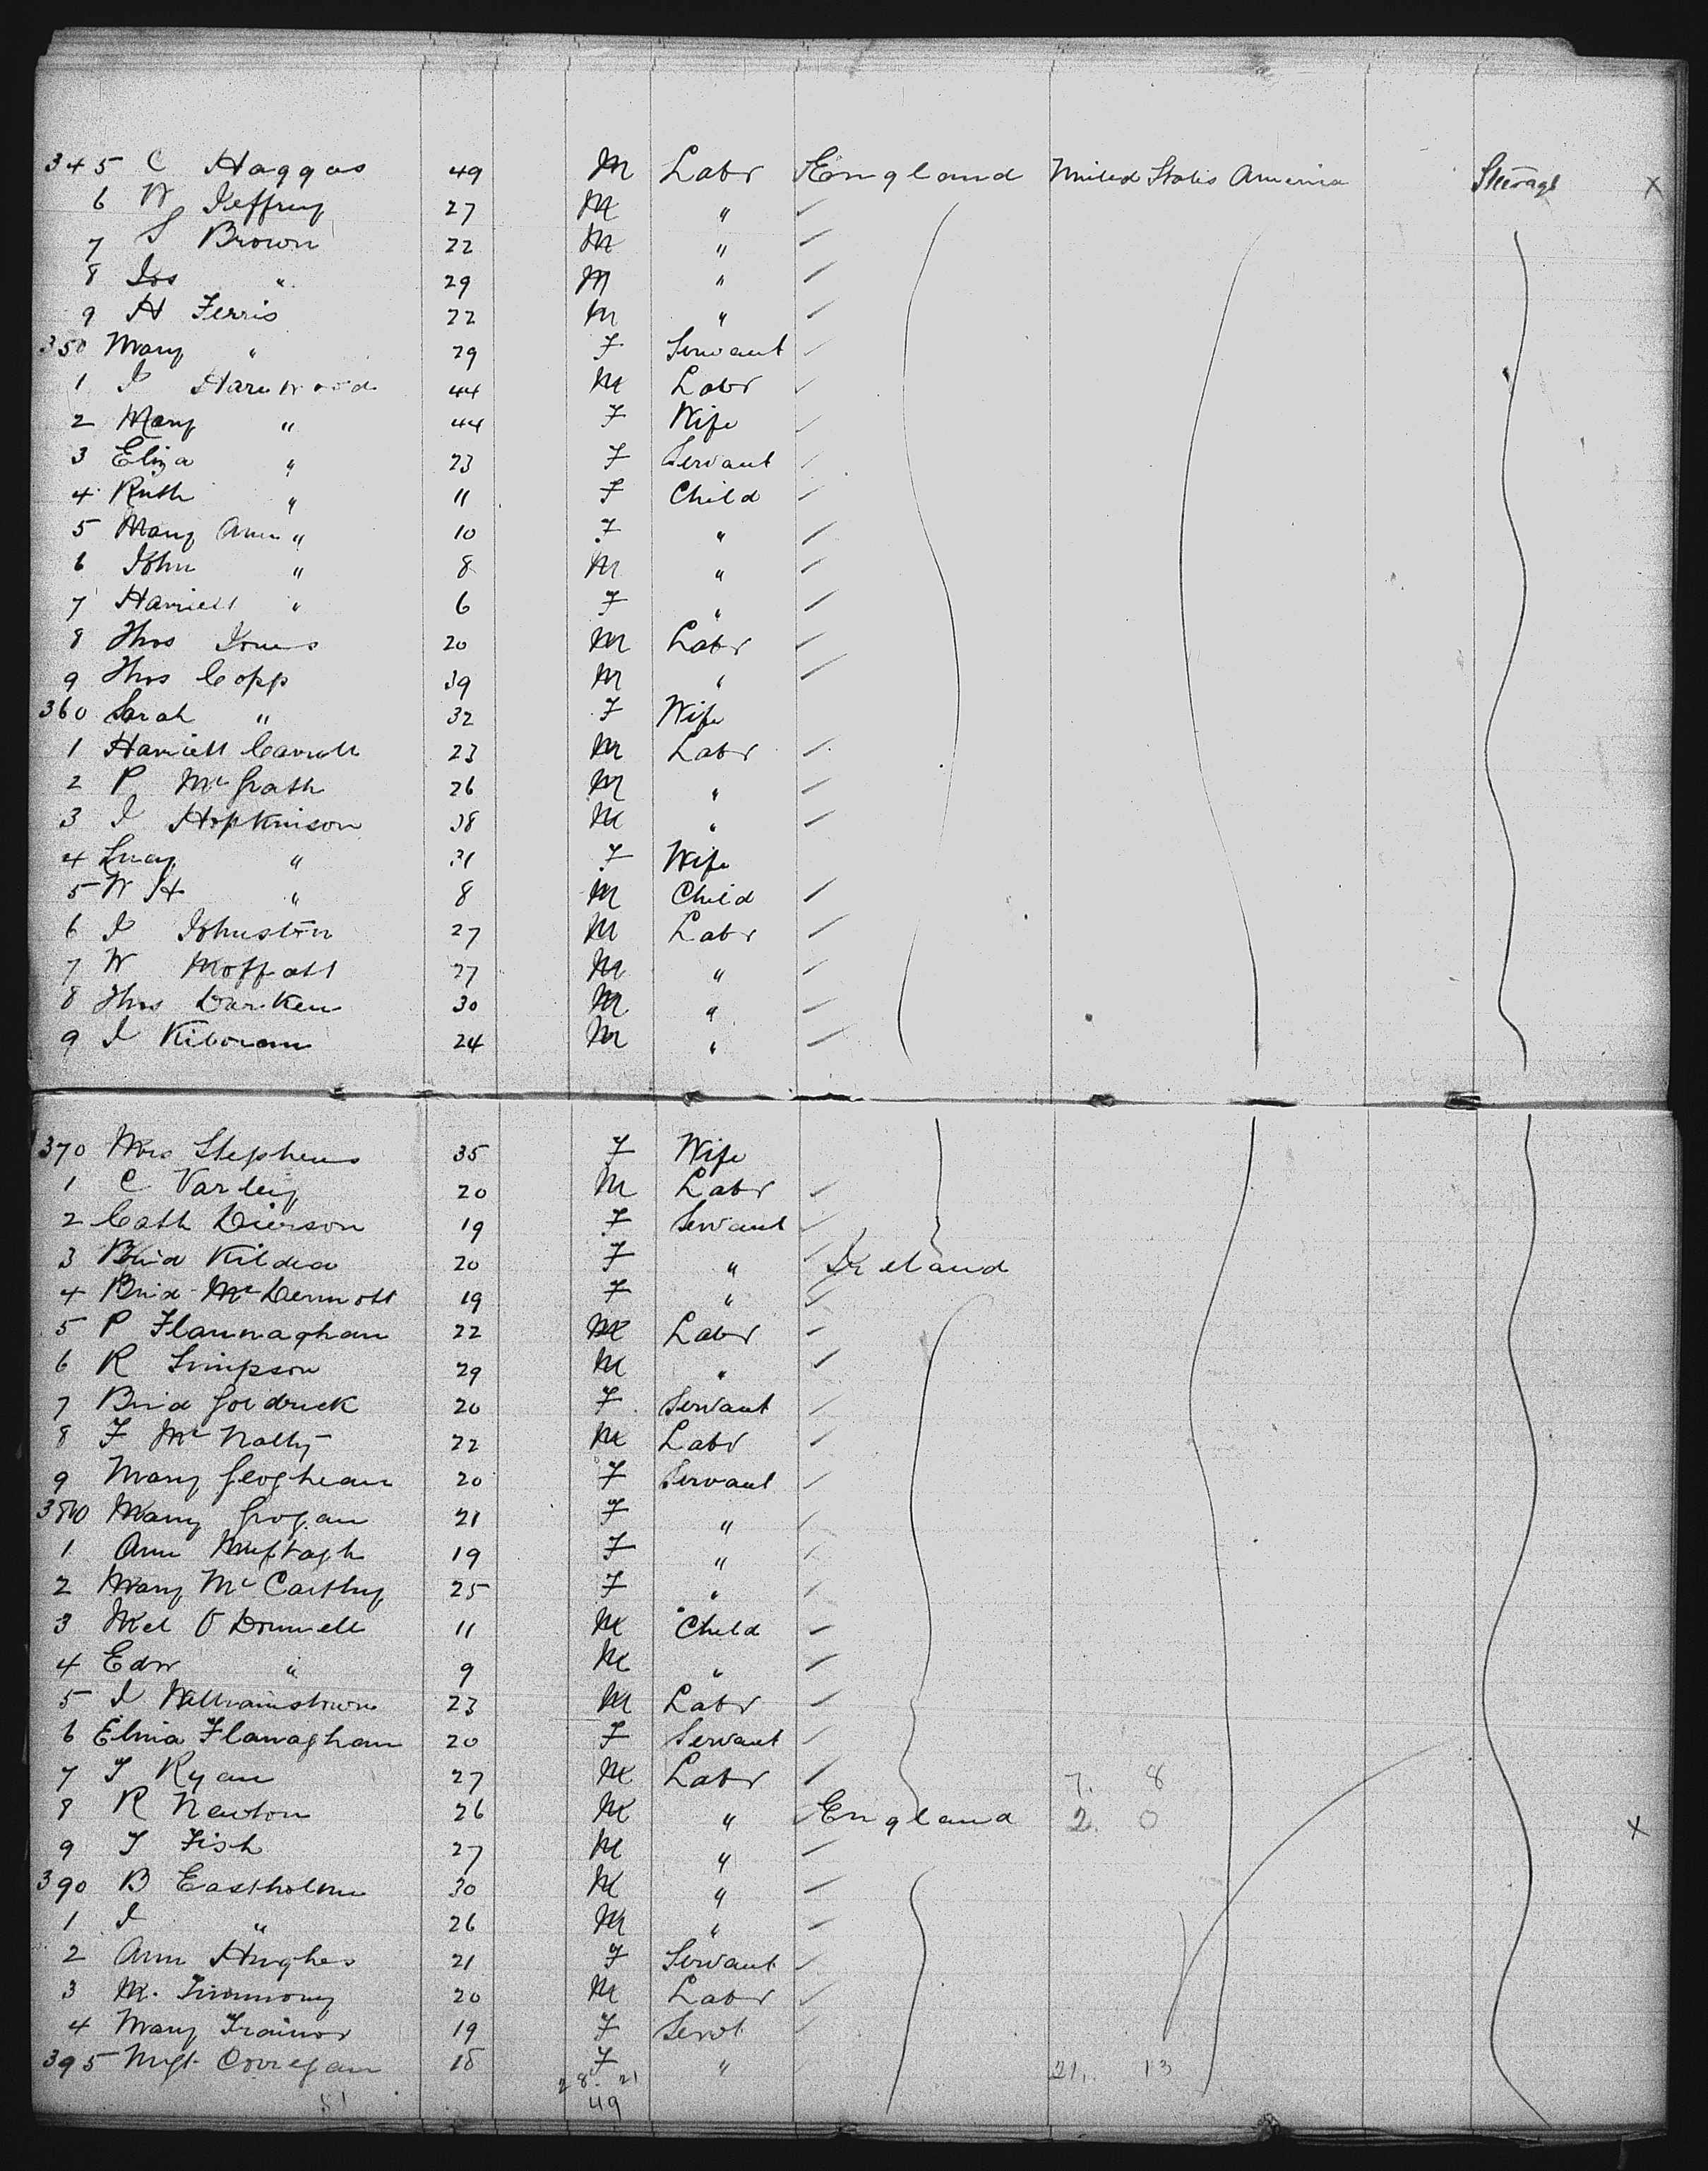 345 C Haggas 49 M Labr England United States America Steerage X
6 W Jeffrey 27 M "
7 S Brown 22 M "
8 Jos " 29 M "
9 H Ferris 22 M "
350 Mary " 29 F Servant
1 J Harewood 44 M Labr
2 Mary " 44 F Wife
3 Eliza " 23 F Servant
4 Ruth " 11 F Child
5 Mary Ann " 10 F "
6 John " 8 M "
7 Harriett " 6 F "
8 Thos Jones 20 M Labr
9 Thos Copp 39 M "
360 Sarah " 32 F Wife
1 Harriett Carroll 23 M Labr
2 P McGrath 26 M "
3 J Hopkinson 38 M "
4 Lucy " 31 F Wife
5 W H " 8 M Child
6 J Johnston 27 M Labr
7 W Moffatt 27 M "
8 Thos Darken 30 M "
9 J 24 M "
370 Mrs Stephens 35 F Wife
1 C Varley 20 M Labr
2 Cath Dierson 19 F Servant
3 Brid Kildea 20 F " Ireland
4 Brid McDermott 19 F "
5 P Flannaghan 22 M Labr
6 R Simpson 29 M "
7 Brid Goldrick 20 F Servant
8 F McNalty 22 M Labr
9 Mary Geoghean 20 F Servant
380 Mary Grogan 21 F "
1 Ann Murtagh 19 F "
2 Mary McCarthy 25 F "
3 Mel O Donnell 11 M Child
4 Edw " 9 M "
5 J Williamstown 23 M Labr
6 Elina Flanaghan 20 F Servant
7 T Ryan 27 M Labr 7. 8
8 R Newton 26 M " England 2. 0 X
9 T Fish 27 M "
390 B Eastholme 30 M "
1 J " 26 M "
2 Ann Hughes 21 F Servant
3 M. Timmony 20 M Labr
4 Mary Trainor 19 F Servt
395 Mgt Corregan 18 F " 21. 13
28. 21
49